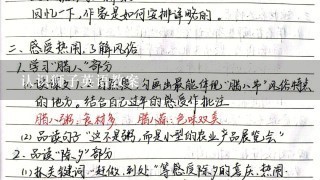 回忆一下，作家是如何安排详略的。
二、感受热闹，了解风俗
1. 学习“腊八”部分
认识狮子英语教案
(1) 读课文，自由默读，勾画出最能体现“腊八节”风俗特点
的地方。结合自己过年的感受作批注
腊八粥：食材多 腊八蒜：色味双美
(2) 品读句子“这不是粥，而是小型的农业产品展览会”
2. 品读“除夕”部分
(1) 抓关键词“赶做、到处”等感受除夕的喜庆、热闹